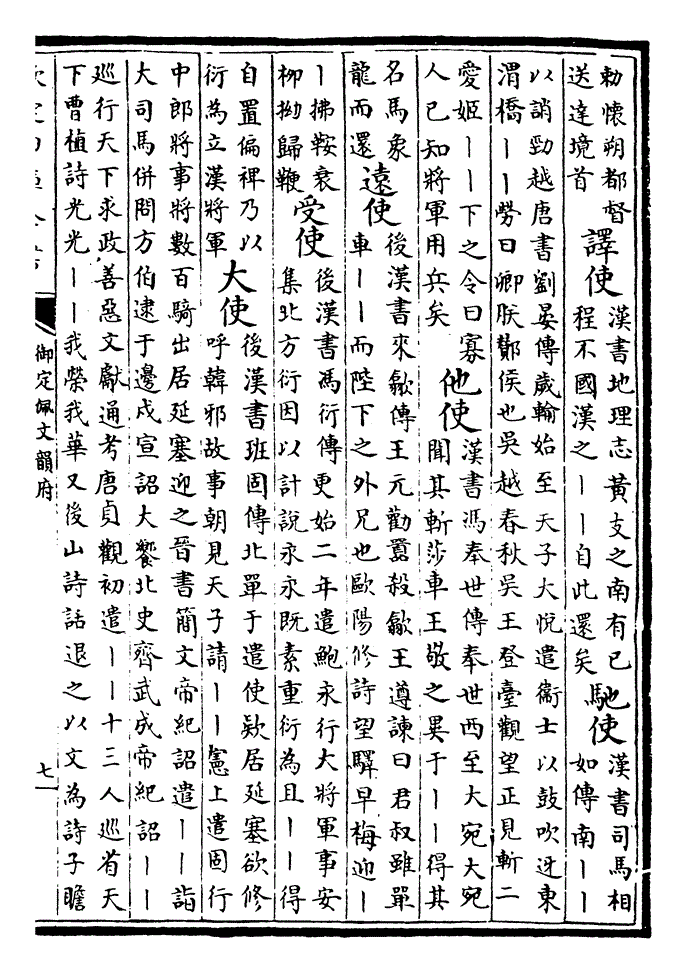 勅懷朔都督
送達境首
譯使
漢書地理志黃支之南有已
程不國漢之丨丨自此還矣
馳使
漢書司馬相
如傳南丨丨
以誚勁越唐書劉晏傳歲輸始至天子大悅遣衞士以鼓吹迓東
渭橋丨丨勞曰卿朕酇侯也吳越春秋吳王登臺觀望正見斬二
愛姬丨丨下之令曰寡
人已知將軍用兵矣
他使
漢書馮奉世傳奉世西至大宛大宛
聞其斬莎車王敬之異于丨丨得其
名馬象
龍而還
遠使
後漢書來歙傳王元勸囂殺歙王遵諫曰君叔雖單
車丨丨而陛下之外兄也歐陽修詩望驛早梅迎丨
丨拂鞍衰
柳拗歸鞭
受使
後漢書馮衍傳更始二年遣鮑永行大將軍事安
集北方衍因以計說永永既素重衍為且丨丨得
自置偏裨乃以
衍為立漢將軍
大使
後漢書班固傳北單于遣使欵居延塞欲修
呼韓邪故事朝見天子請丨丨憲上遣固行
中郎將事將數百騎出居延塞迎之晉書簡文帝紀詔遣丨丨詣
大司馬併問方伯逮于邊戍宣詔大饗北史齊武成帝紀詔丨丨
巡行天下求政善惡文獻通考唐貞觀初遣丨丨十三人巡省天
下曹植詩光光丨丨我榮我華又後山詩話退之以文為詩子瞻
御定佩文韻府
七